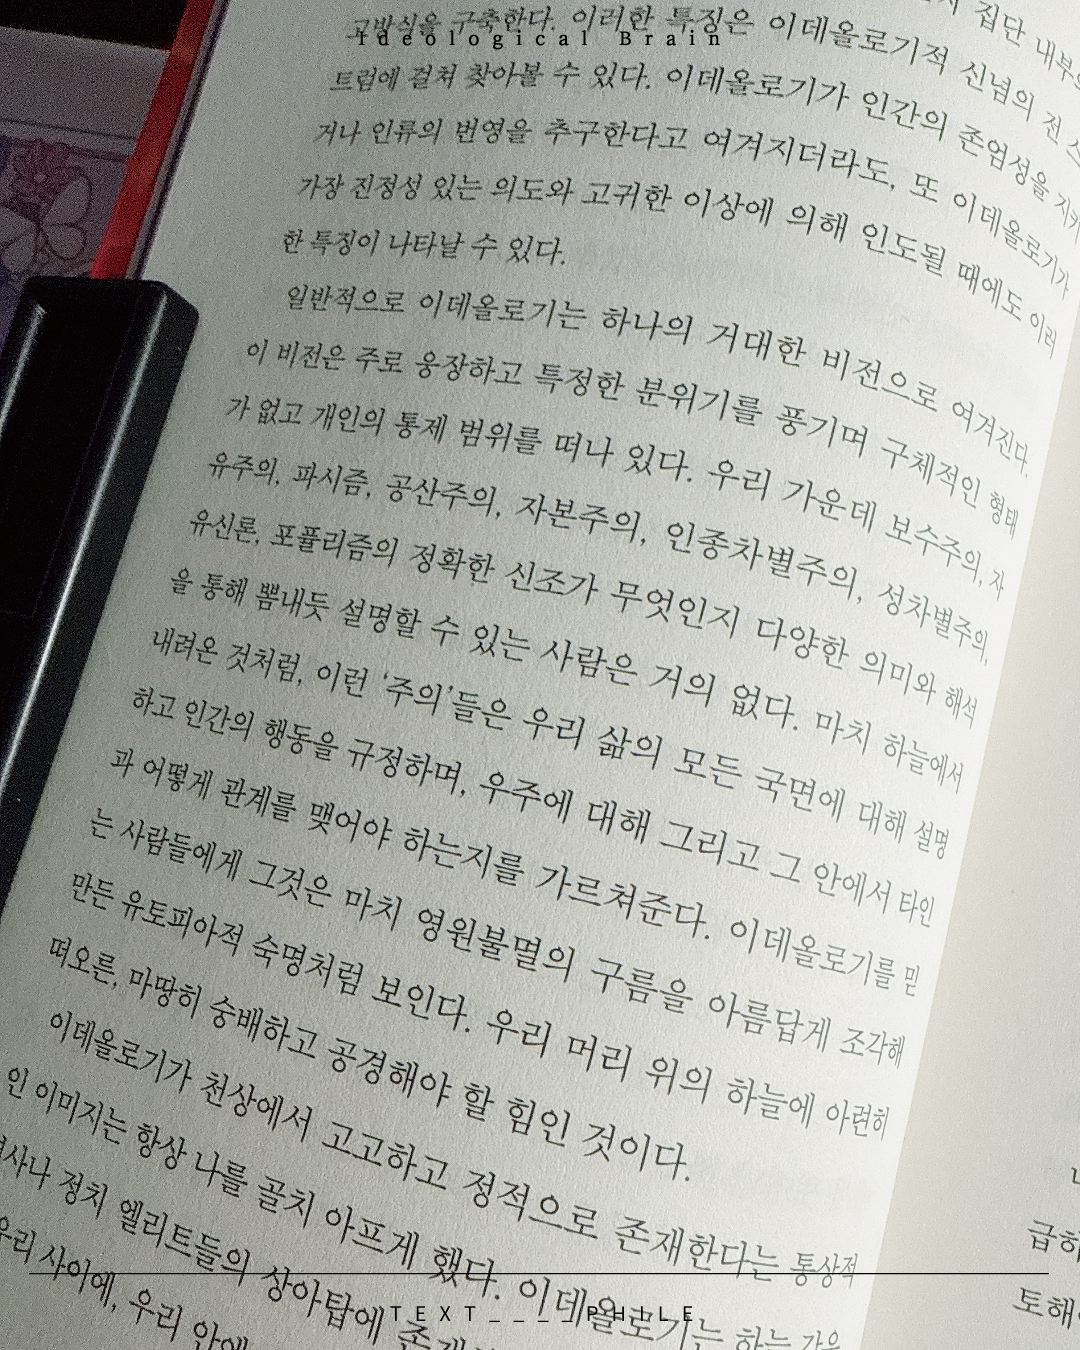 Ideological Brain
집단 내부
고방식을 구축한다. 이러한 특징은 이데올로기적 신념의 전 스
트럼에 걸쳐 찾아볼 수 있다. 이데올로기가 인간의 존엄성을 지키
거나 인류의 번영을 추구한다고 여겨지더라도, 또 이데올로기가
가장 진정성 있는 의도와 고귀한 이상에 의해 인도될 때에도 이러
한 특징이 나타날 수 있다.
일반적으로 이데올로기는 하나의 거대한 비전으로 여겨진다.
이 비전은 주로 웅장하고 특정한 분위기를 풍기며 구체적인 형태
가 없고 개인의 통제 범위를 떠나 있다. 우리 가운데 보수주의, 자
유주의, 파시즘, 공산주의, 자본주의, 인종차별주의, 성차별주의,
유신론, 포퓰리즘의 정확한 신조가 무엇인지 다양한 의미와 해석
을 통해 뽐내듯 설명할 수 있는 사람은 거의 없다. 마치 하늘에서
내려온 것처럼, 이런 ‘주의’들은 우리 삶의 모든 국면에 대해 설명
하고 인간의 행동을 규정하며, 우주에 대해 그리고 그 안에서 타인
과 어떻게 관계를 맺어야 하는지를 가르쳐준다. 이데올로기를 믿
는 사람들에게 그것은 마치 영원불멸의 구름을 아름답게 조각해
만든 유토피아적 숙명처럼 보인다. 우리 머리 위의 하늘에 아련히
떠오른, 마땅히 숭배하고 공경해야 할 힘인 것이다.
이데올로기가 천상에서 고고하고 정적으로 존재한다는 통상적
인 이미지는 항상 나를 골치 아프게 했다. 이데올로기는 하늘 가운
정치 엘리트들의 상아탑에
우리 사이에, 우리 안에
급하
토해
TEXT____PHILE